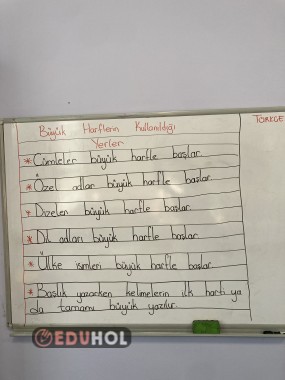 Büyük Harflerin Kullanıldığı
Yerler
TÜRKÇE
* Cümleler büyük harfle başlar.
* Özel adlar büyük harfle başlar.
* Dizeler büyük harfle başlar.
* Dil adları büyük harfle başlar.
* Ülke isimleri büyük harfle başlar.
* Başlık yazarken kelimelerin ilk harfi ya
da tamamı büyük yazılır.
EDUHOL